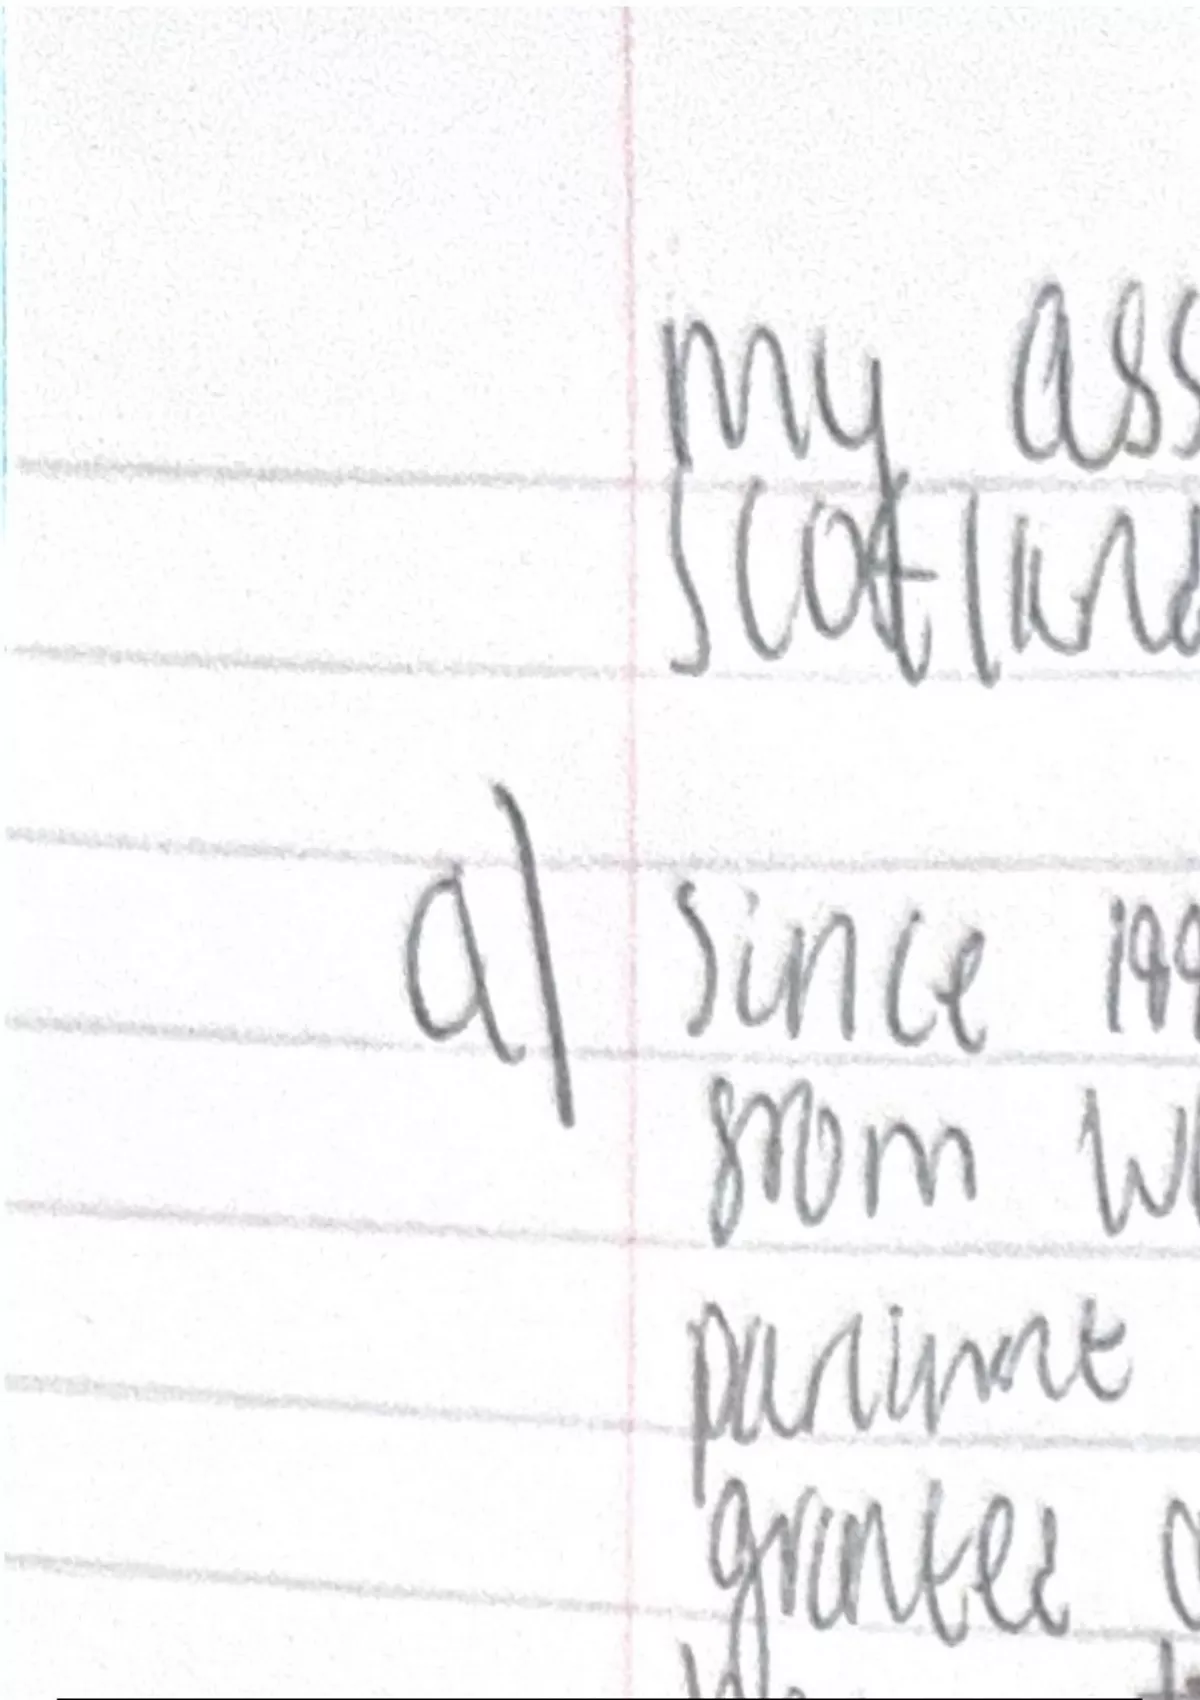 my ass
Scotland
a) Since 199
from w
parimnt
granted